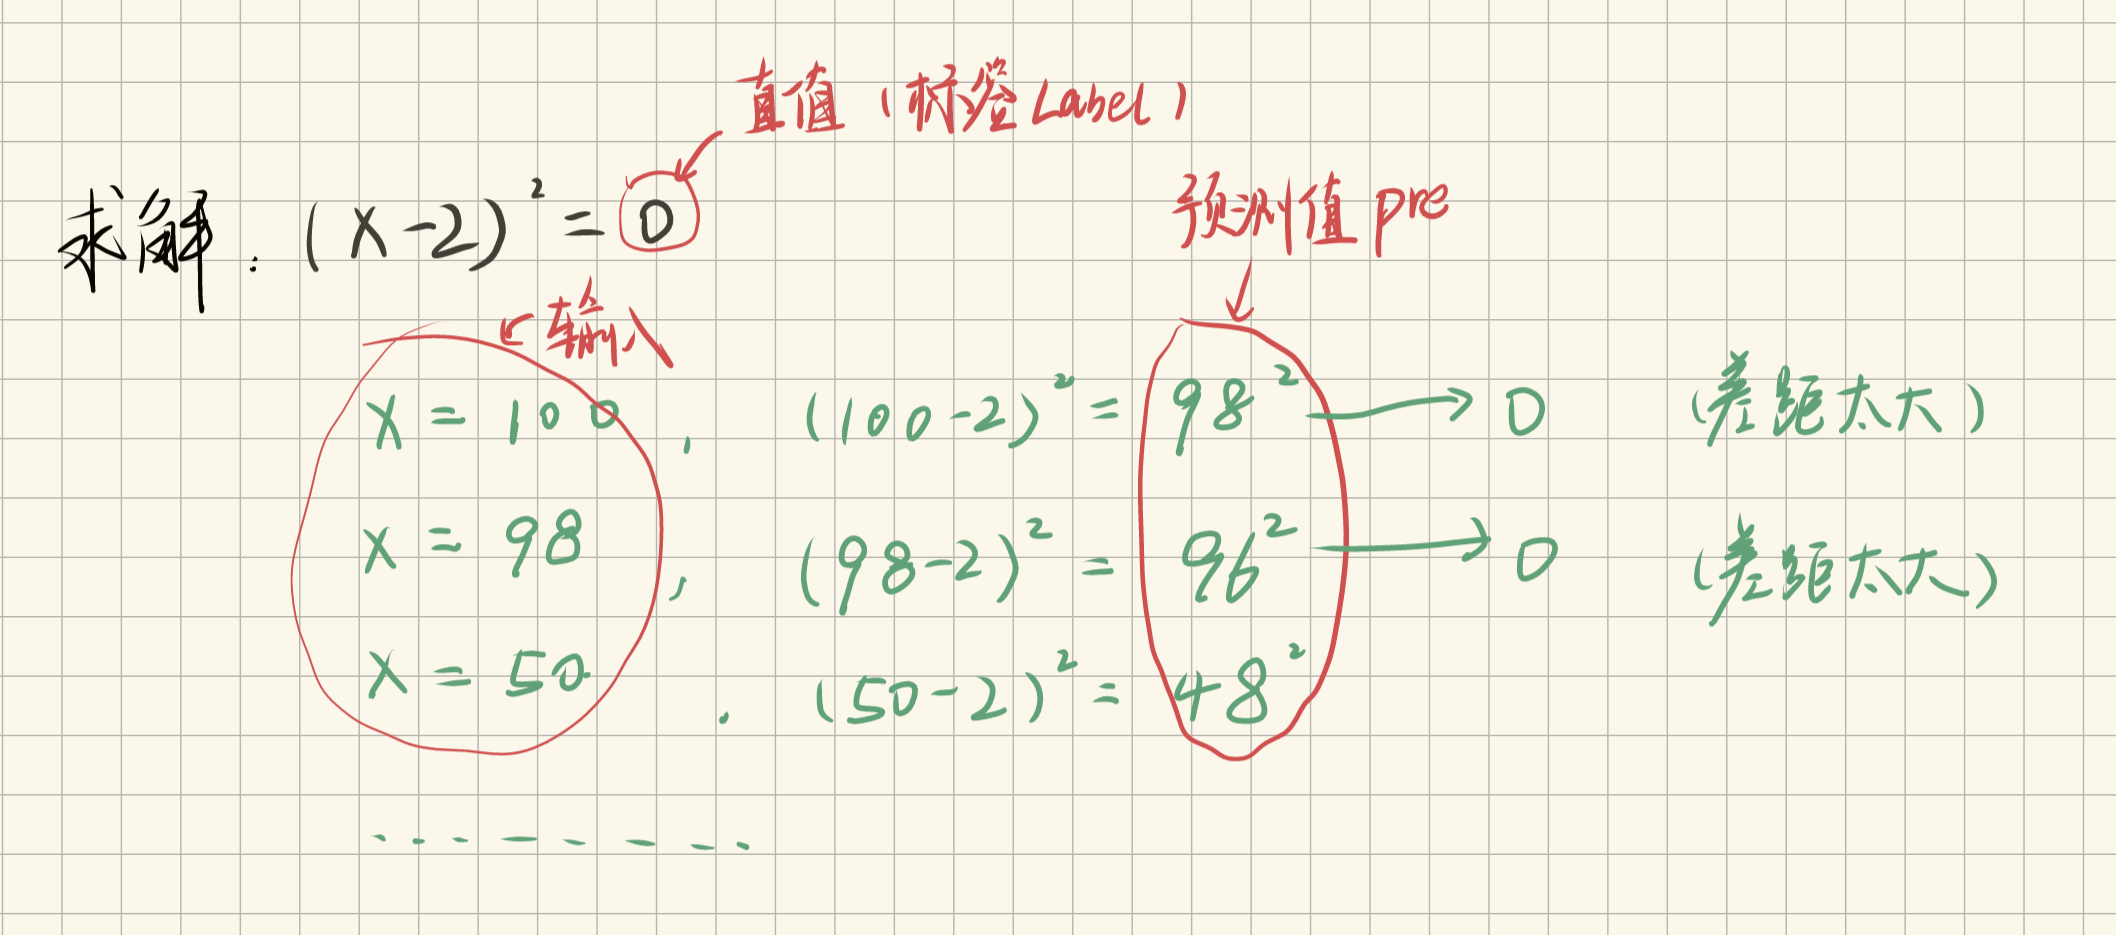 真值（标签Label）
求解：(x-2)² = 0
预测值 pre
输入
x = 100, (100-2)² = 98² → 0 (差距太大)
x = 98, (98-2)² = 96² → 0 (差距太大)
x = 50. (50-2)² = 48²
........